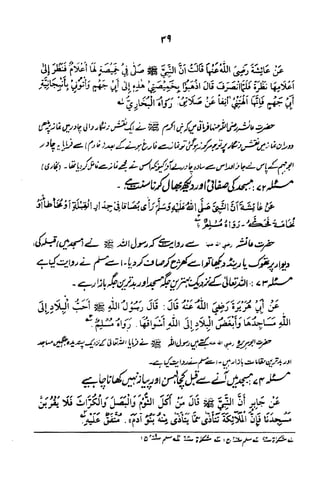 ۳۹
عَنْ عَائِشَةَ رَضِيَ اللهُ عَنْهَا قَالَتْ أَنَّ النَّبِيَّ ﷺ صَلَّى فِي خَمِيصَةٍ لَهَا أَعْلَامٌ فَنَظَرَ إِلَى
أَعْلَامِهَا نَظْرَةً فَلَمَّا انْصَرَفَ قَالَ اذْهَبُوا بِخَمِيصَتِي هٰذِهِ إِلَى أَبِي جَهْمٍ وَأْتُونِي بِأَنْبِجَانِيَّةِ
أَبِي جَهْمٍ فَإِنَّهَا أَلْهَتْنِي آنِفًا عَنْ صَلَاتِي. رَوَاهُ الْبُخَارِيُّ
حضرت عائشہ رضی اللہ عنہا فرماتی ہیں کہ نبی اکرم ﷺ نے ایک نقش ونگار والی چادر میں نماز پڑھی
دوران نماز میں نقش ونگار پر توجہ مرکوز ہو گئی تو نماز سے فارغ ہونے کے بعد فرمایا یہ چادر
ابوجہم کے پاس لے جاؤ اور اس سے سادہ چادر لے آؤ کیونکہ اس نے مجھے نماز سے غافل کر دیا تھا۔ (بخاری)
مسئلہ ۷۲: مسجد کی صفائی اور دیکھ بھال کرنا سنت ہے۔
عَنْ عَائِشَةَ أَنَّ النَّبِيَّ صَلَّى اللهُ عَلَيْهِ وَسَلَّمَ رَأَى بُصَاقًا فِي جِدَارِ الْقِبْلَةِ أَوْ مُخَاطًا أَوْ
نُخَامَةً فَحَكَّهُ. رَوَاهُ مُسْلِمٌ
حضرت عائشہ سے روایت ہے کہ رسول اللہ ﷺ نے مسجد میں قبلہ کی
دیوار پر تھوک یا رینٹ دیکھا تو اسے کھرچ کر صاف کر دیا۔ اسے مسلم نے روایت کیا ہے
مسئلہ ۷۳: اللہ تعالیٰ کے نزدیک بہترین جگہ مسجد اور بدترین جگہ بازار ہے۔
عَنْ أَبِي هُرَيْرَةَ رَضِيَ اللهُ عَنْهُ قَالَ: قَالَ رَسُولُ اللهِ ﷺ أَحَبُّ الْبِلَادِ إِلَى
اللهِ مَسَاجِدُهَا وَأَبْغَضُ الْبِلَادِ إِلَى اللهِ أَسْوَاقُهَا. رَوَاهُ مُسْلِمٌ
حضرت ابو ہریرہ کہتے ہیں رسول اللہ ﷺ نے فرمایا اللہ تعالیٰ کے نزدیک پسندیدہ جگہیں مساجد
اور بدترین مقامات بازار ہیں۔ اسے مسلم نے روایت کیا ہے۔
مسئلہ ۷۴: مسجد میں آنے سے قبل کچا لہسن اور پیاز نہیں کھانا چاہیے
عَنْ جَابِرٍ أَنَّ النَّبِيَّ ﷺ قَالَ مَنْ أَكَلَ الثُّومَ وَالْبَصَلَ وَالْكُرَّاثَ فَلَا يَقْرَبَنَّ
مَسْجِدَنَا فَإِنَّ الْمَلَائِكَةَ تَتَأَذَّى مِمَّا يَتَأَذَّى مِنْهُ بَنُو آدَمَ. مُتَّفَقٌ عَلَيْهِ